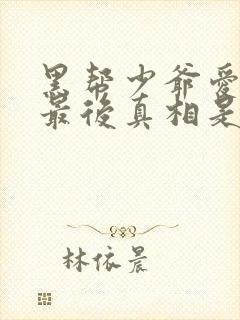 黑帮少爷爱
最後真相是
林依晨